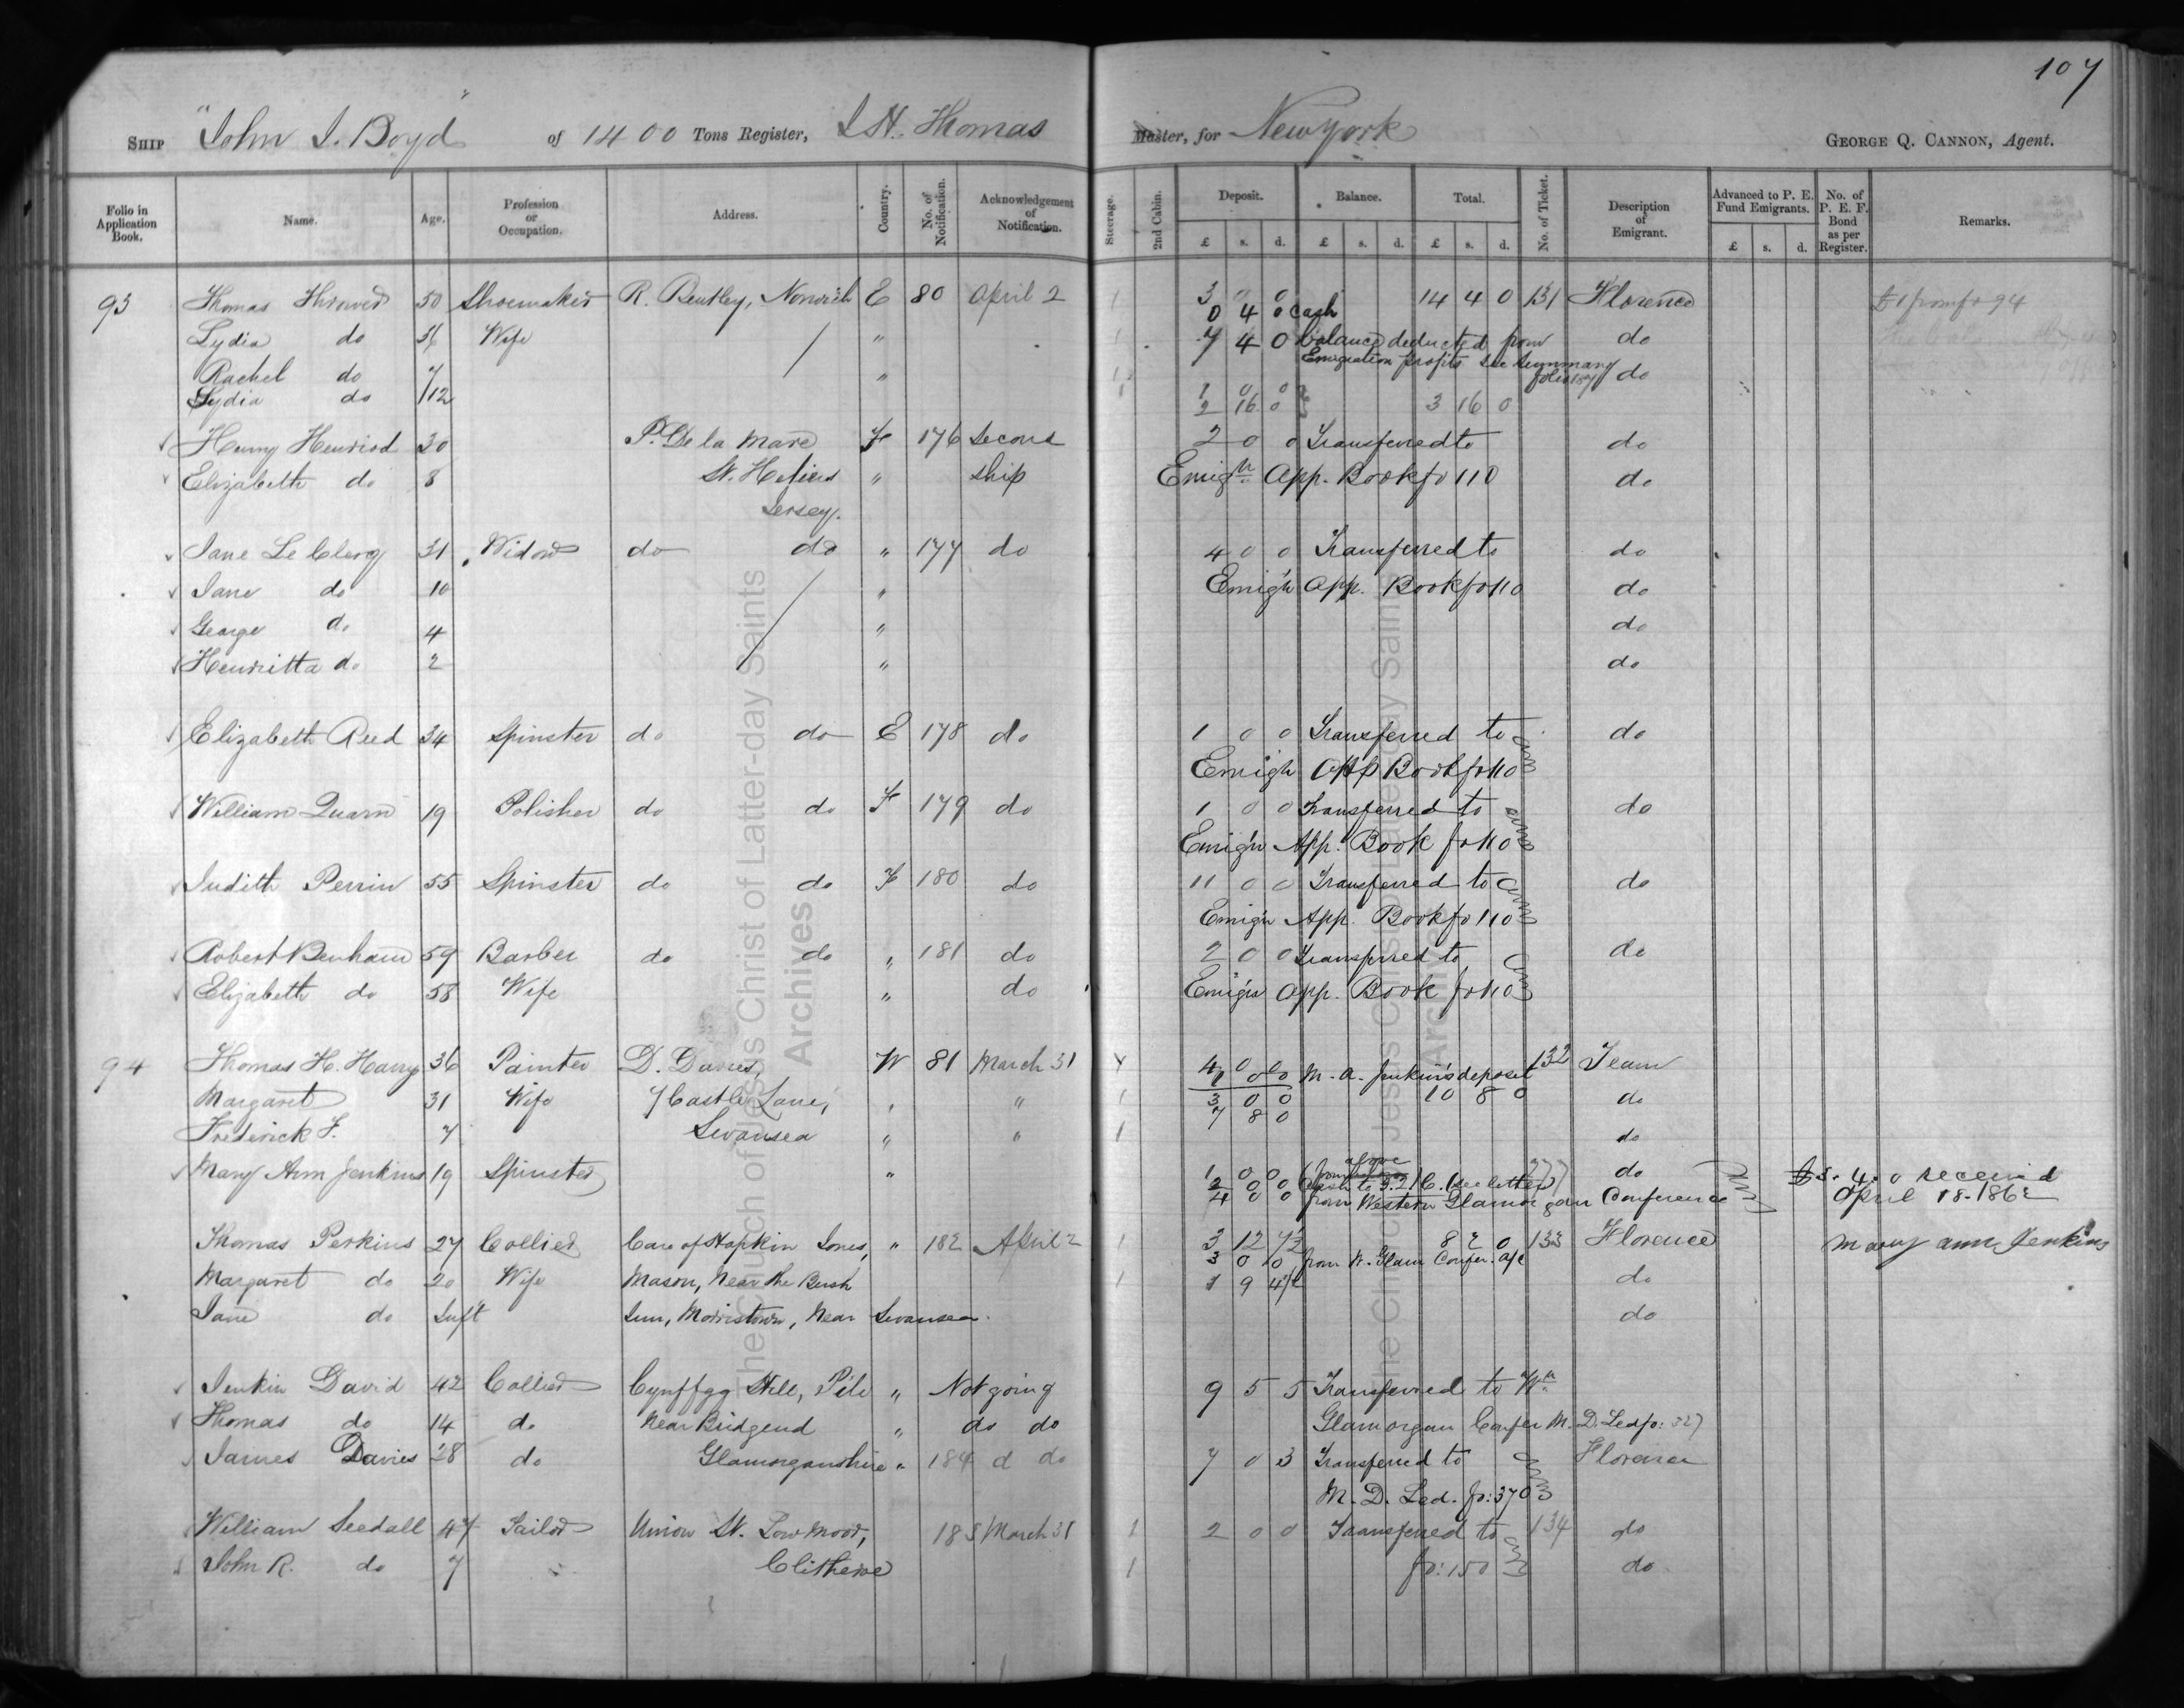 107
SHIP "John J. Boyd" of 1400 Tons Register, J H. Thomas Master, for New York GEORGE Q. CANNON, Agent.
Folio in Application Book. Name. Age. Profession or Occupation. Address. Country. No. of Notification. Acknowledgement of Notification. Steerage. 2nd Cabin. Deposit. £ s. d. Balance. £ s. d. Total. £ s. d. No. of Ticket. Description of Emigrant. Advanced to P. E. Fund Emigrants. £ s. d. No. of P. E. F. Bond as per Register. Remarks.
93 Thomas Thrower 50 Shoemaker R. Bentley, Norwich E 80 April 2 1 3 0 0 14 4 0 131 Florence £1 from fo 94
0 4 0 Cash
Lydia do 36 Wife " 1 7 4 0 balance deducted from do
Emigration profits see Summary
Rachel do 7 " 1 folio 187 do
Lydia do /12 1 0 0
2 16 0 3 16 0
Henry Henriod 30 P. De la Mare F 176 Second 2 0 0 Transferred to do
Elizabeth do 8 St. Heliers " Ship Emign App. Book fo 110 do
Jersey.
Jane Le Clerq 31 Widow do do " 177 do 4 0 0 Transferred to do
Jane do 10 " Emig'n App. Book fo 110 do
George do 4 " do
Henrietta do 2 " do
Elizabeth Reed 34 Spinster do do E 178 do 1 0 0 Transferred to do
Emig'n App Book fo 110
William Quarn 19 Polisher do do F 179 do 1 0 0 Transferred to do
Emig'n App. Book fo 110
Judith Perrin 55 Spinster do do F 180 do 11 0 0 Transferred to do
Emig'n App. Book fo 110
Robert Benham 59 Barber do do " 181 do 2 0 0 Transferred to do
Elizabeth do 58 Wife " do Emig'n App. Book fo 110
94 Thomas H. Harry 36 Painter D. Davies, W 81 March 31 4 0 0 132 Team
M. A. Jenkin's deposit
Margaret 31 Wife 7 Castle Lane, " " 1 3 0 0 10 8 0 do
7 8 0
Frederick F. 7 Swansea " " 1 do
Mary Ann Jenkins 19 Spinster " 1 0 0 above do £5. 4. 0 received
2 0 0 (see letter)
4 0 0 from Western Glamorgan Conference April 18-1862
Thomas Perkins 27 Collier Care of Hopkin Jones, " 182 April 2 1 3 12 7½ 8 2 0 133 Florence Mary Ann Jenkins
3 0 0 from W. Glam Confer. a/c
Margaret do 20 Wife Mason, Near the Bush 1 1 9 4½ do
Jane do Inft Inn, Morristown, Near Swansea. do
Jenkin David 42 Collier Cynffgg Hill, Pile " Not going 9 5 5 Transferred to Wn
Thomas do 14 do Near Bridgend " do do Glamorgan Confer M. D. Led fo: 327
James Davies 28 do Glamorganshire " 184 d do 7 0 3 Transferred to Florence
M. D. Led. fo: 370
William Seedall 47 Tailor Union St. Low Moor, 185 March 31 1 2 0 0 Transferred to 134 do
John R. do 7 Clitheroe 1 fo: 150 do
The Church of Jesus Christ of Latter-day Saints
Archives
The Church of Jesus Christ of Latter-day Saints
Archives